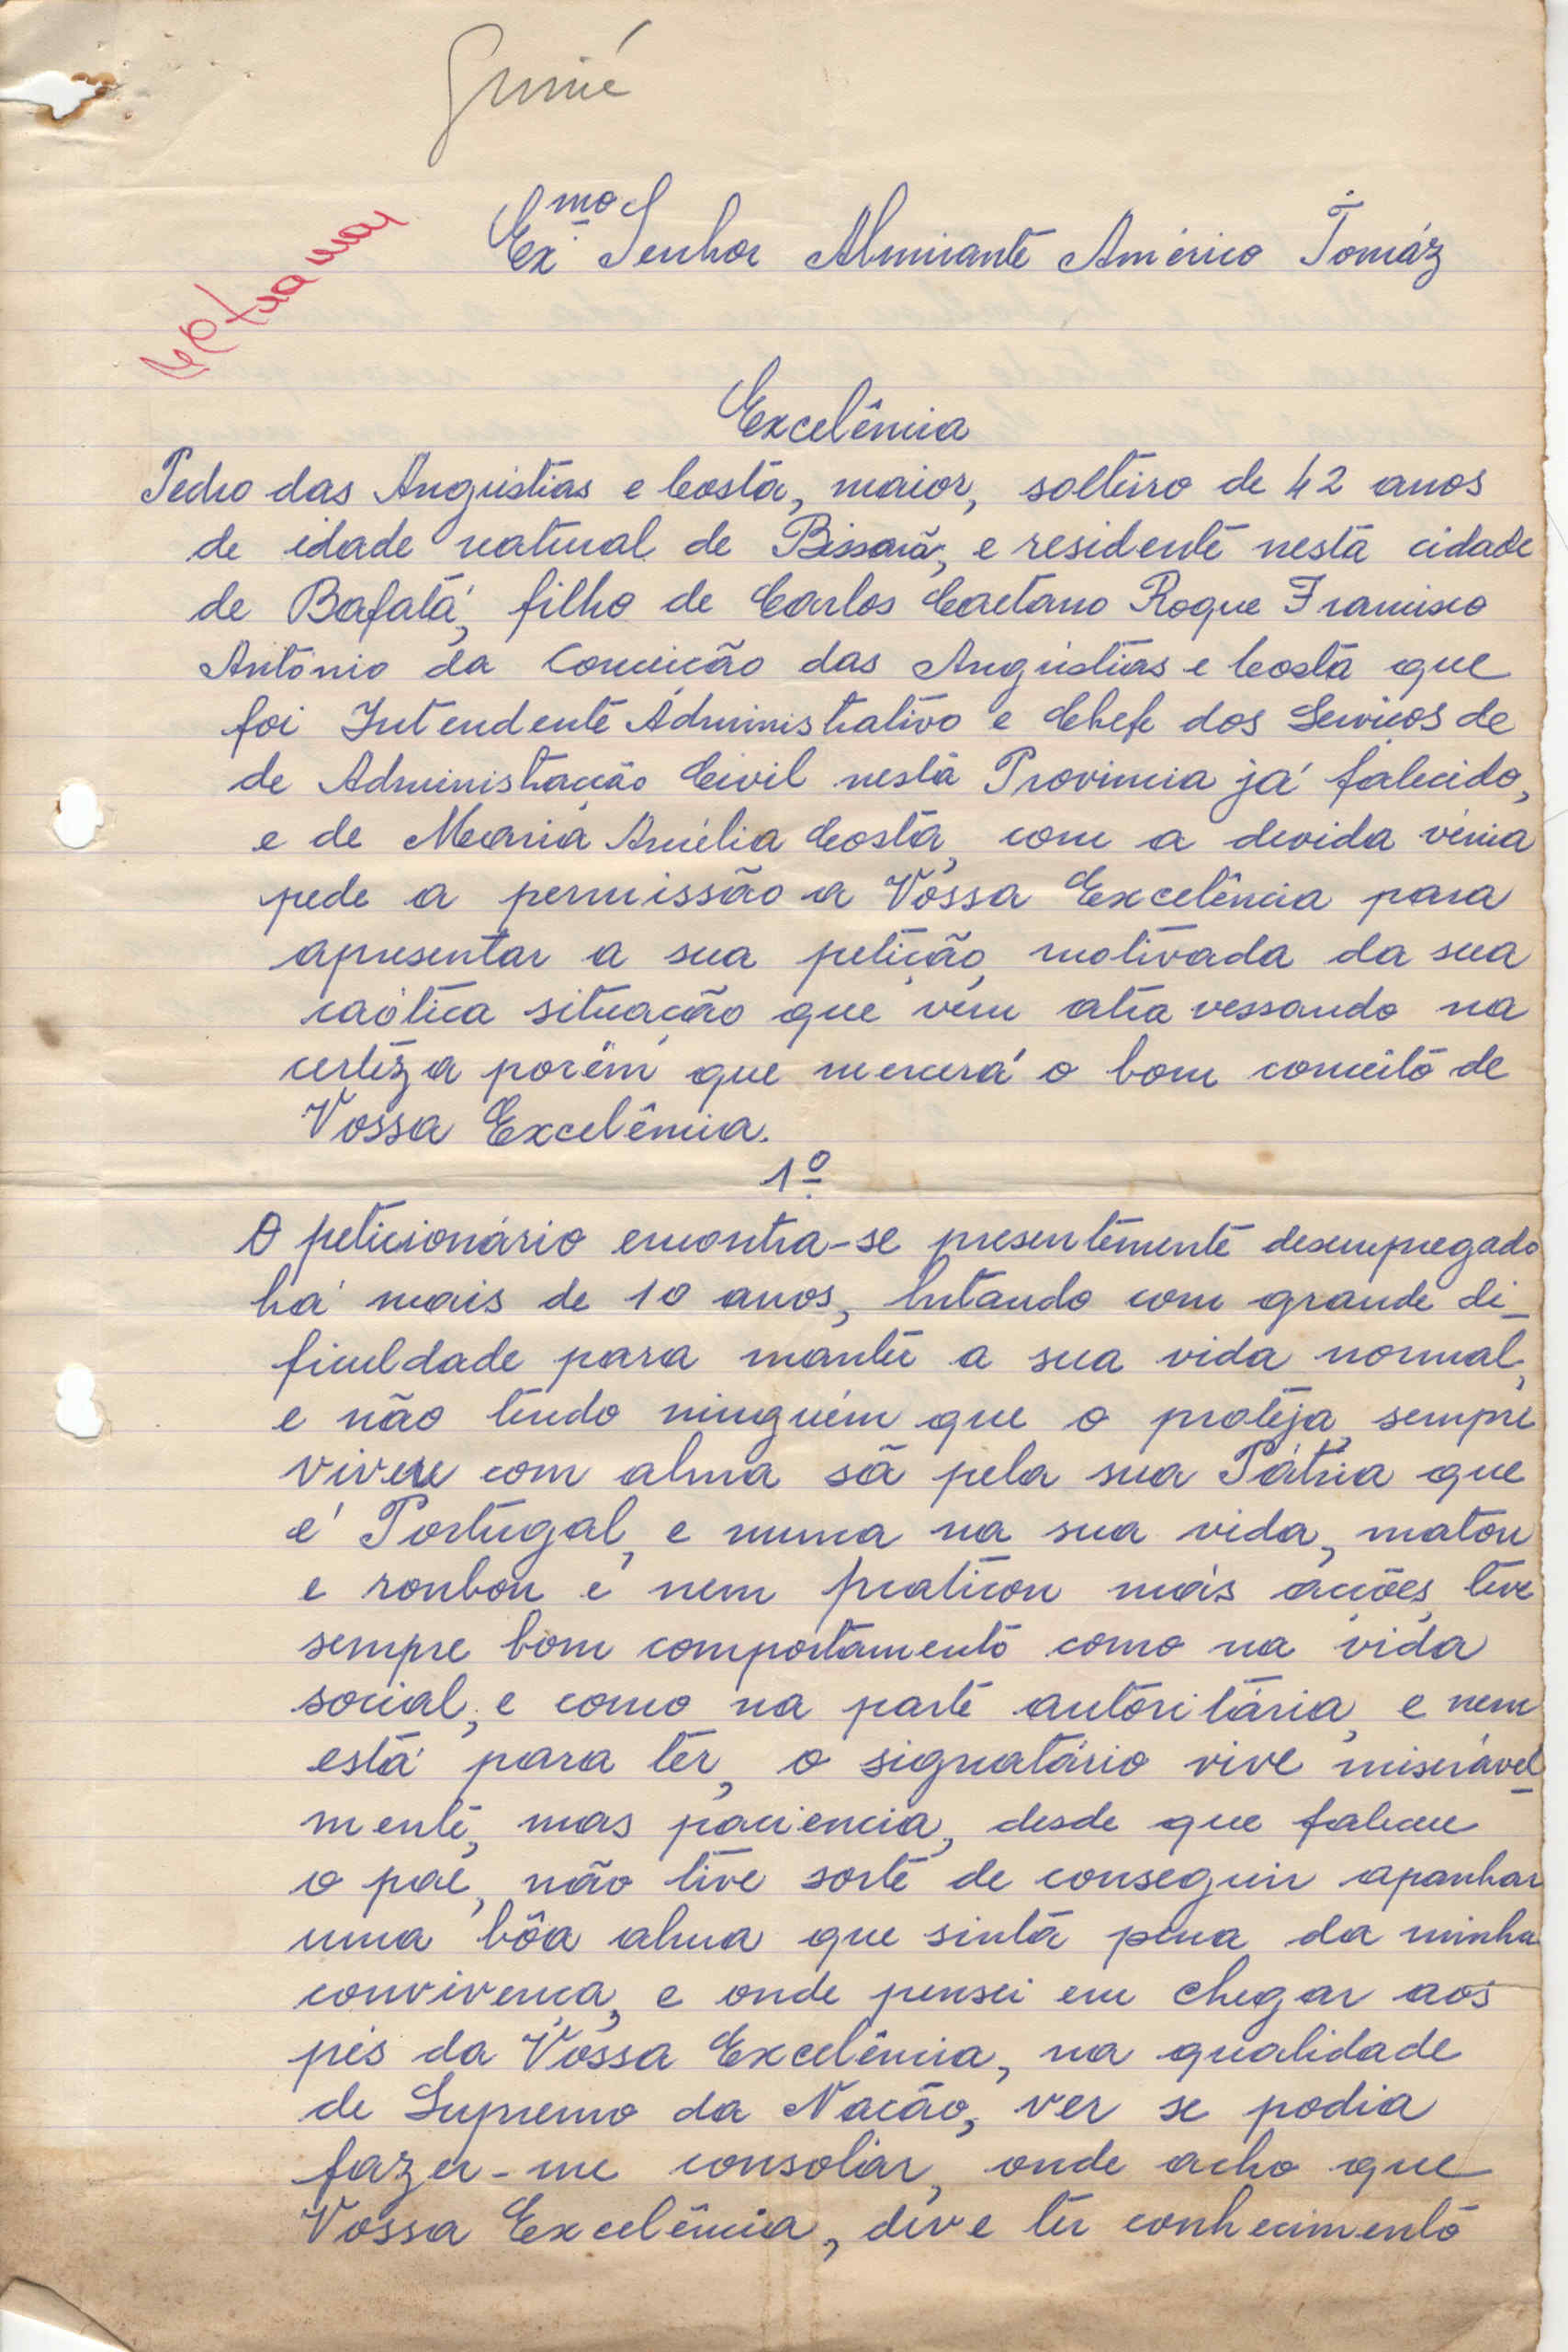 Guiné
Exmo. Senhor Almirante Américo Tomáz
Excelência
Pedro das Angústias e Costa, maior, solteiro de 42 anos
de idade natural de Bissorã, e residente nesta cidade
de Bafatá, filho de Carlos Caetano Roque Francisco
António da Conceição das Angústias e Costa que
foi Intendente Administrativo e Chefe dos Serviços de
de Administração Civil nesta Provincia já falecido,
e de Maria Amélia Costa, com a devida vénia
pede a permissão a Vossa Excelência para
apresentar a sua petição, motivada da sua
caótica situação que vem atravessando na
certeza porém que mercerá o bom conceito de
Vossa Excelência.
1º
O peticionário encontra-se presentemente desempregado
há mais de 10 anos, lutando com grande di-
ficuldade para manter a sua vida normal,
e não tendo ninguém que o proteja, sempre
viveu com alma sã pela sua Pátria que
é Portugal, e nunca na sua vida, matou
e roubou e nem praticou más acções, teve
sempre bom comportamento como na vida
social, e como na parte autoritária, e nem
está para ter, o signatário vive miserávei-
mente, mas paciencia, desde que faleceu
o pae, não tive sorte de conseguir apanhar
uma bôa alma que sinta pena da minha
convivença, e onde pensei em chegar aos
pés da Vossa Excelência, na qualidade
de Supremo da Nação, ver se podia
fazer-me consolar, onde acho que
Vossa Excelência, deve ter conhecimento